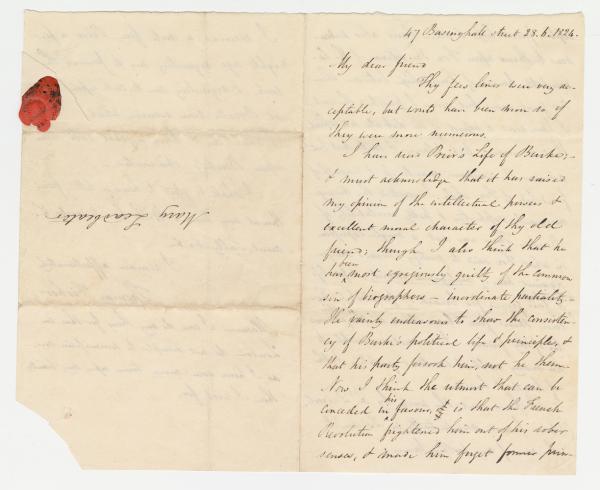 47 Basinghall street 28.6.1824.
My dear friend
Thy few lines were very ac-
ceptable, but would have been more so if
they were more numerous.
I have read Prior's Life of Burke;
& must acknowledge that it has raised
my opinion of the intellectual powers &
excellent moral character of thy old
friend; though I also think that he
has been most egregiously guilty of the common
sin of biographers – inordinate partiality.
He vainly endeavours to show the consisten-
cy of Burke's political life & principle, &
that his party forsook him, not he them.
Now I think the utmost that can be
conceded in his favour, is that the French
Revolution frightened him out of his sober
senses, & made him forget former prin-
Mary Leadbeater